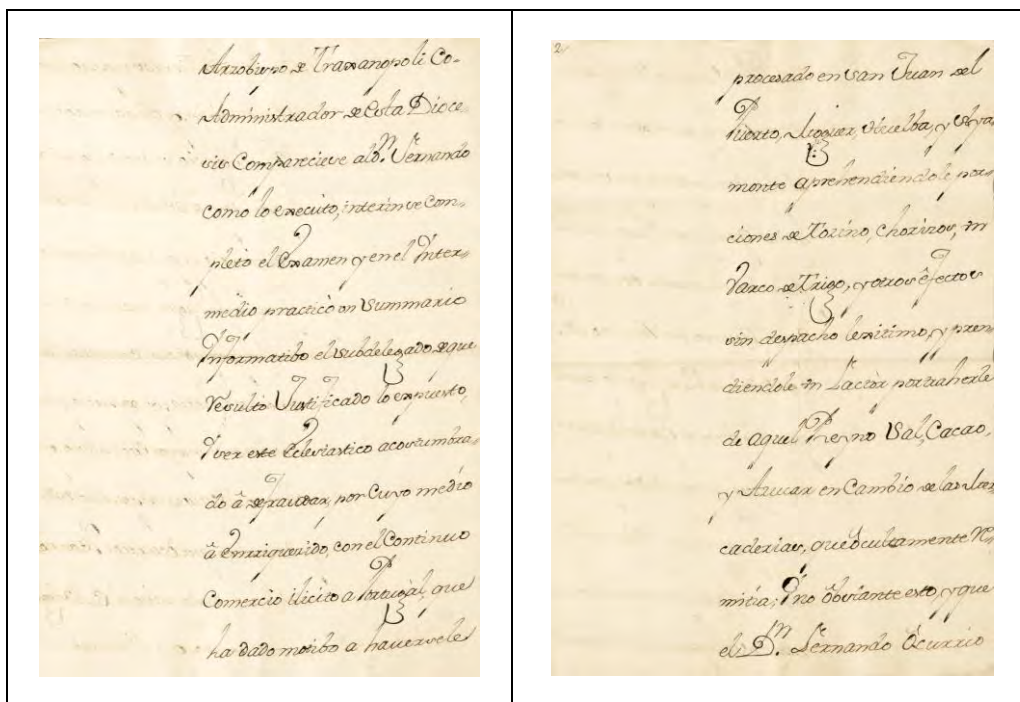 Arzobispo de Traxanopoli Co-
Administrador de esta Dioce-
sis Compareciese al dn. Fernando
como lo executó, interin se com-
pleto el Examen y en el Inter-
medio practicò un Summario
Informatibo el Subdelegado de que
resultó Justificado lo expuesto,
Y ser este Eclesiastico acostumbra-
do â defraudar, por Cuyo medio
â Enrriquezido, con el Continuo
Comercio ilicito a Portugal, que
ha dado motibo a haversele
2
procesado en San Juan del
Puerto, Moguer, Huelba, y Aya-
monte aprehendiendole por-
ciones de Tozino, Chorizos, un
Varco de Trigo, y otros efectos
sin despacho lexitimo, y pren-
diendole un Factòr por traherle
de aquel Reyno Sal, Cacao,
y Azucar en Cambio de las Mer-
caderias, que ocultamente Re-
mitia; Y no obstante esto, y que
el Dn. Fernando Ocurrio